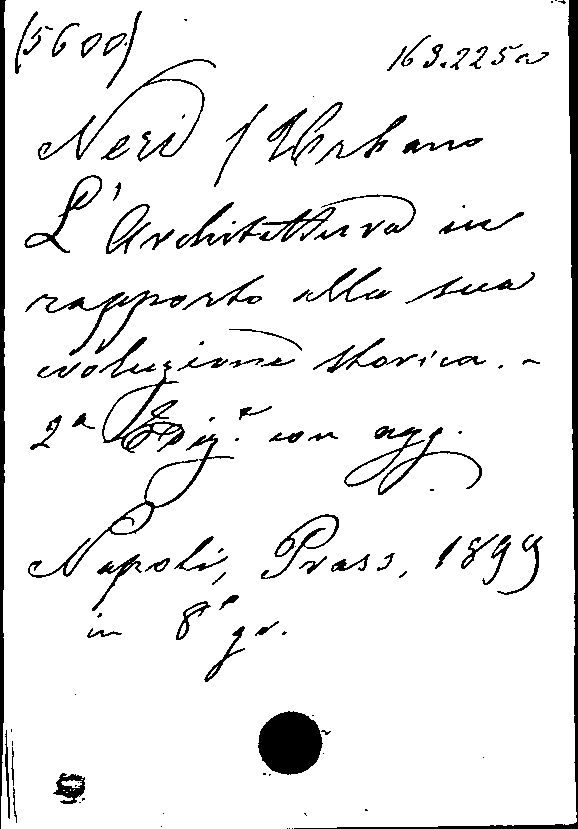 (5600)
163.225a
Neri / Urbano
L'Architettura in
rapporto alla sua
evoluzione storica. -
2ª Ediz.e con agg.
Napoli, Prass, 1899
in 8° gr.